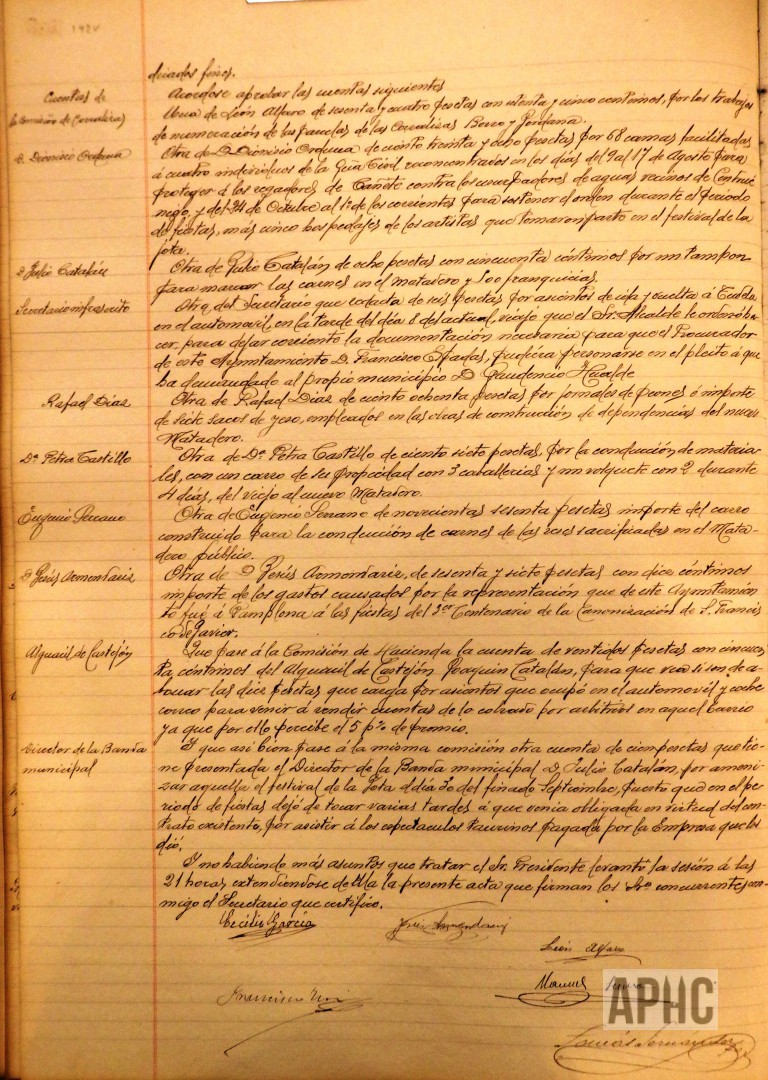 1924
diados fines.
Cuentas de
la Comisión de Corralizas
Acordose aprobar las cuentas siguientes
Una de León Alfaro de sesenta y cuatro pesetas con setenta y cinco centimos, por los trabajos
de numeración de las parcelas de las Corralizas Berco y Jordana.
D. Dionisio Orduna
Otra de D. Dionisio Orduna de ciento treinta y ocho pesetas por 68 camas facilitadas
á cuatro individuos de la Gua Civil reconcentrados en los días del 9 al 17 de Agosto para
proteger á los regadores de Cañete contra los usurpadores de aguas vecinos de Cintrue
nigo, y del 24 de Octubre al 1º de los corrientes para sostener el orden durante el periodo
de fiestas, más cinco hospedajes de los artistas que tomaron parte en el festival de la
jota.
D. Julio Catalán
Otra de Julio Catalán de ocho pesetas con cincuenta céntimos por un tampon
para marcar las carnes en el matadero y 500 franquicias.
Secretario infrascrito
Otra del Secretario que redacta de seis pesetas por asientos de ida y vuelta á Tudela
en el automovil, en la tarde del día 8 del actual, viaje que el Sr. Alcalde le ordenó ha
cer, para dejar corriente la documentación necesaria para que el Procurador
de este Ayuntamiento D. Francisco Espadas, pudiera personarse en el pleito á que
ha demandado al propio municipio D. Gaudencio Alcalde
Rafael Díaz
Otra de Rafael Díaz de ciento ochenta pesetas por jornales de peones é importe
de siete sacos de yeso, empleados en las obras de construcción de dependencias del nuevo
Matadero.
Dª Petra Castillo
Otra de Dª Petra Castillo de ciento siete pesetas, por la conducción de materia
les, con un carro de su propiedad con 3 caballerias y un volquete con 2 durante
4 días, del viejo al nuevo Matadero.
Eugenio Serrano
Otra de Eugenio Serrano de novecientas sesenta pesetas importe del carro
construido para la conducción de carnes de las reses sacrificadas en el Mata-
dero público.
D. Jesús Armendariz
Otra de D. Jesús Armendariz, de sesenta y siete pesetas con diez céntimos
importe de los gastos causados por la representación que de este Ayuntamien
to fué á Pamplona á las fiestas del 3er Centenario de la Canonización de S. Francis
co de Javier.
Alguacil de Castejón
Que pase á la Comisión de Hacienda la cuenta de ventidos pesetas con cincuen
ta céntimos del Alguacil de Castejón Joaquin Catalán, para que vea si son de a-
bonar las diez pesetas que carga por asientos que ocupó en el automovil y coche
correo para venir á rendir cuentas de lo cobrado por arbitrios en aquel barrio
ya que por ello percibe el 5 p% de premio.
Director de la Banda
municipal
Y que asi bien pase á la misma comisión otra cuenta de cien pesetas que tie-
ne presentada el Director de la Banda municipal D. Julio Catalán, por ameni-
zar aquella el festival de la Jota el día 30 del finado Septiembre, puesto que en el pe
riodo de fiestas dejó de tocar varias tardes á que venia obligada en virtud del con-
trato existente, por asistir á los espectaculos taurinos pagada por la Empresa que los
dió.
Y no habiendo más asuntos que tratar el Sr. Presidente levantó la sesión á las
21 horas, extendiendose de ella la presente acta que firman los Sres concurrentes con-
migo el Secretario que certifico.
Cecilio García
Jesús Armendariz
León Alfaro
Manuel
Francisco
APHC